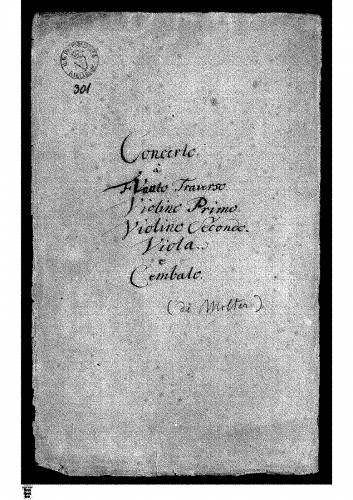 301
Concerto.
à
Flauto Traverso
Violino Primo.
Violino Secondo.
Viola.
e
Cembalo.
(di Molter)